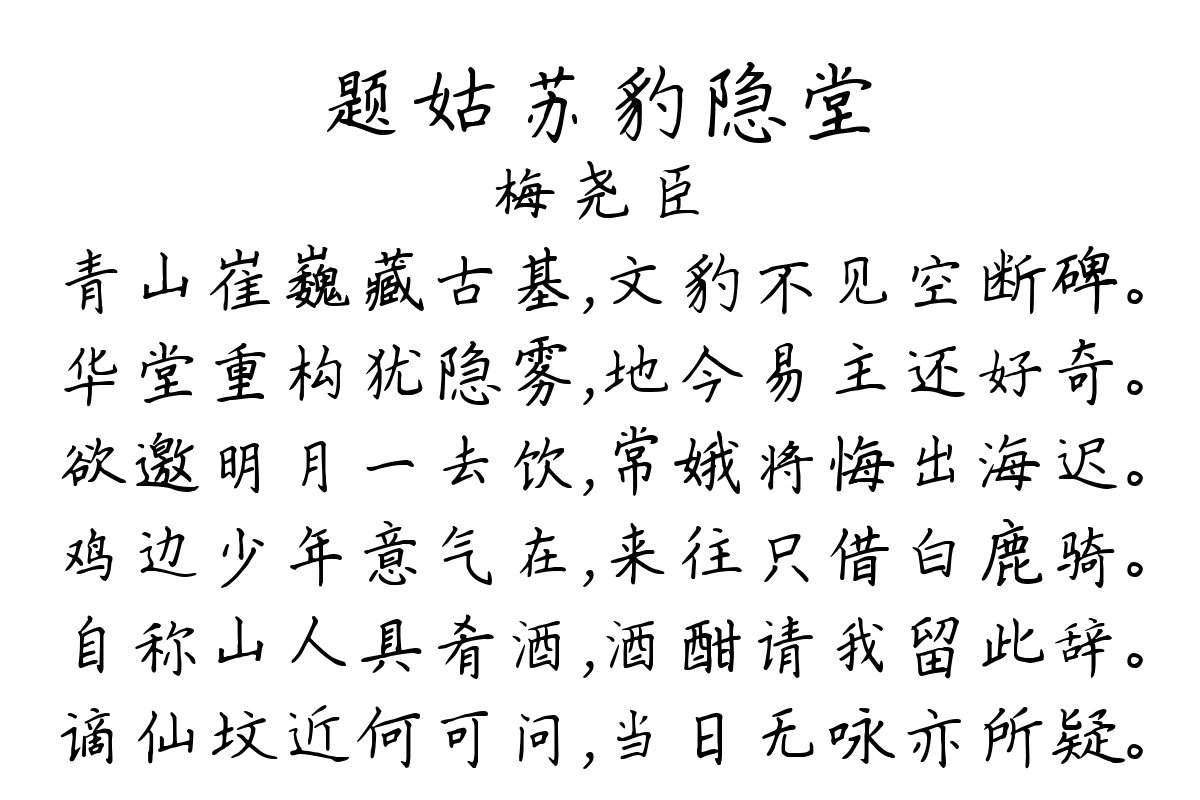 题姑苏豹隐堂
梅尧臣
青山崔巍藏古基,文豹不见空断碑。
华堂重构犹隐雾,地今易主还好奇。
欲邀明月一去饮,常娥将悔出海迟。
鸡边少年意气在,来往只借白鹿骑。
自称山人具肴酒,酒酣请我留此辞。
谪仙坟近何可问,当日无咏亦所疑。